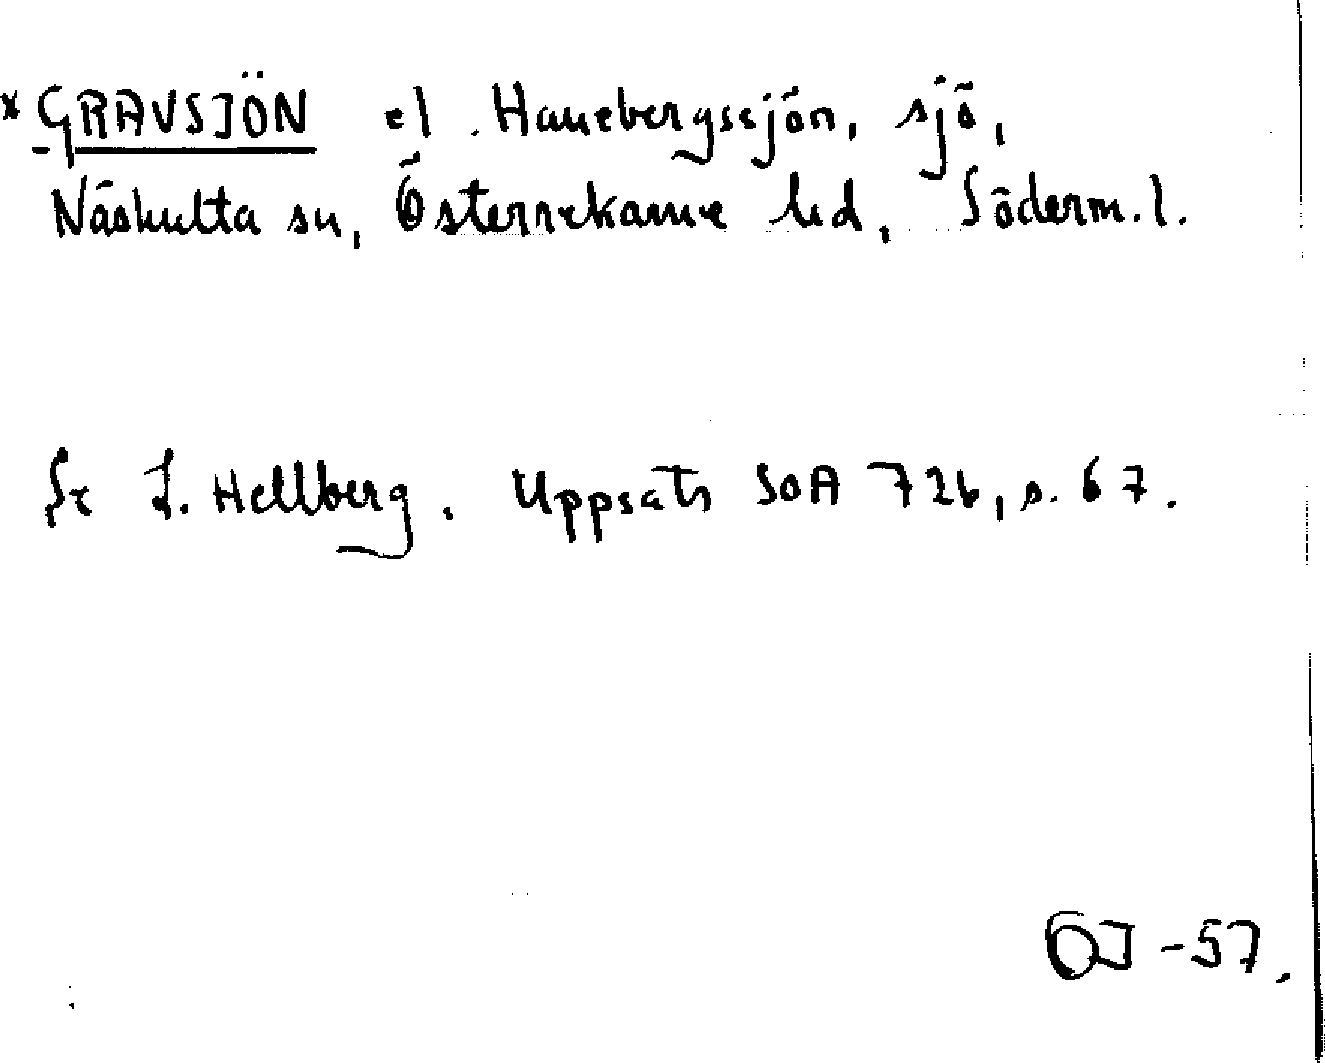 *GRAVSJÖN el. Hanebergssjön, sjö,
Näshulta sn, Österrekarne hd, Söderm.l.
Se L. Hellberg. Uppsats SOA 726, s. 67.
ÖJ -57.